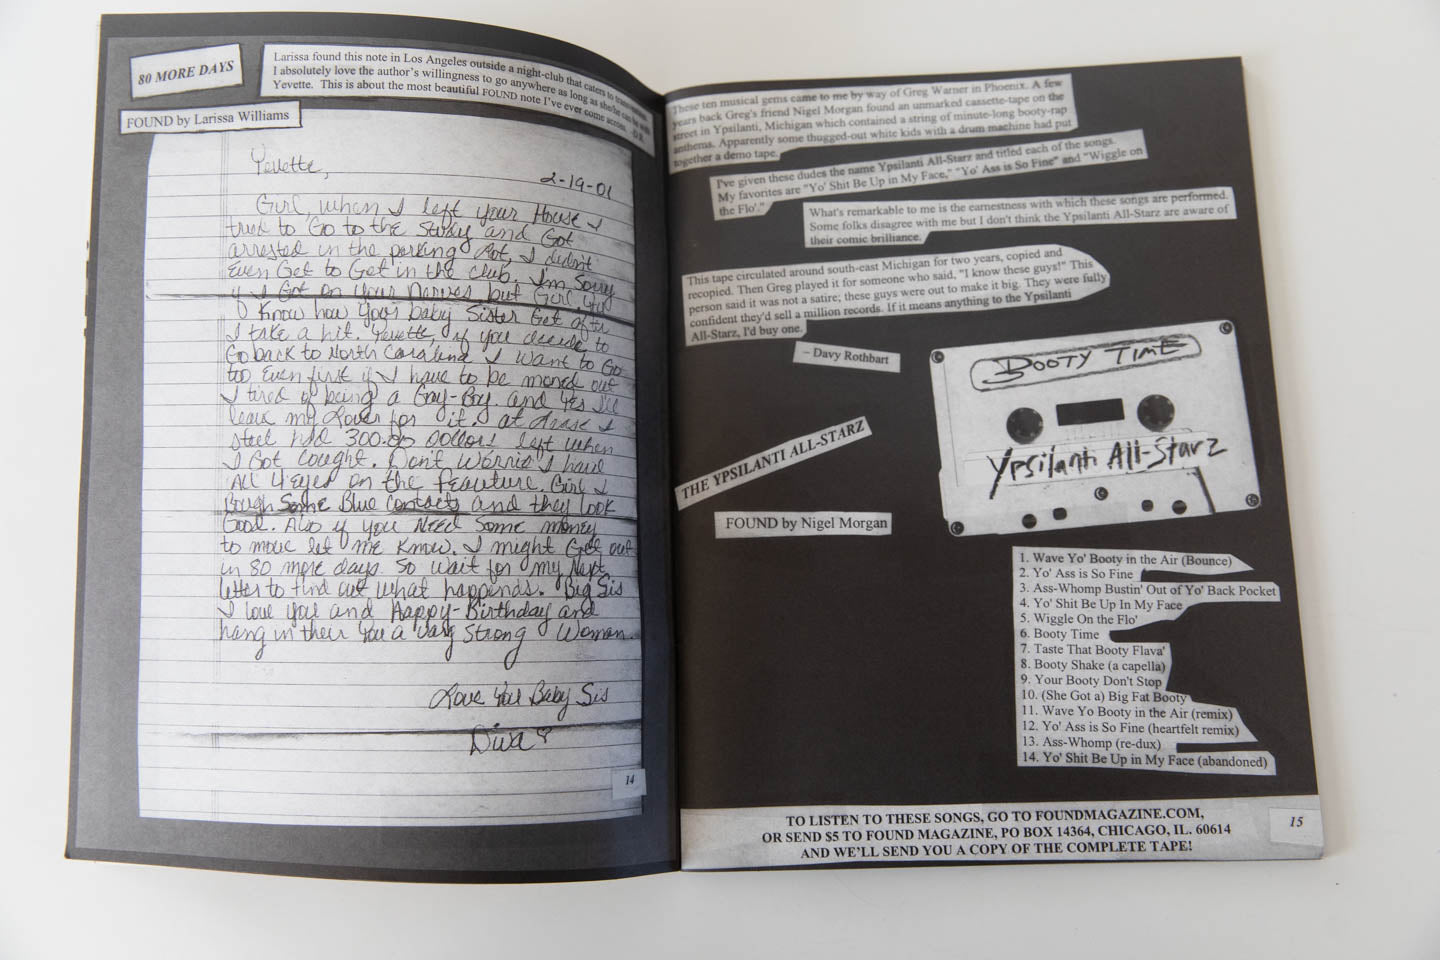 80 MORE DAYS
Larissa found this note in Los Angeles outside a night-club that caters to
I absolutely love the author's willingness to go anywhere as long as she/he can be with
Yevette. This is about the most beautiful FOUND note I've ever come across. -D.R.
FOUND by Larissa Williams
Yevette,
2-19-01
Girl, when I left your House I
tried to Go to the Study and Got
arrested in the parking Lot, I didnt
Even Get to Get in the club. I'm Sorry
if I Got on your Nerves but Girl you
Know how your baby Sister Get after
I take a hit. Yevette, if you decide to
Go back to North Carolina I want to Go
too Even first if I have to be moned out
I tired of being a Gay-Boy and yes I'll
leave my Lover for it. at least I
steel had 300.00 Dollars left when
I Got Cought. Don't Worrie I have
All 4 Eyes on the feauture. Girl I
Bough Some Blue Contacts and they look
Good. Also if you Need Some money
to move let me know. I might Get out
in 80 more days. So wait for my Next
letter to find out what happends. Big Sis
I love you and Happy-Birthday and
hang in their you a vary Strong Woman.
Love You Baby Sis
Diva
14
These ten musical gems came to me by way of Greg Warner in Phoenix. A few
years back Greg's friend Nigel Morgan found an unmarked cassette-tape on the
street in Ypsilanti, Michigan which contained a string of minute-long booty-rap
anthems. Apparently some thugged-out white kids with a drum machine had put
together a demo tape.
I've given these dudes the name Ypsilanti All-Starz and titled each of the songs.
My favorites are "Yo' Shit Be Up in My Face," "Yo' Ass is So Fine" and "Wiggle on
the Flo'."
What's remarkable to me is the earnestness with which these songs are performed.
Some folks disagree with me but I don't think the Ypsilanti All-Starz are aware of
their comic brilliance.
This tape circulated around south-east Michigan for two years, copied and
recopied. Then Greg played it for someone who said, "I know these guys!" This
person said it was not a satire; these guys were out to make it big. They were fully
confident they'd sell a million records. If it means anything to the Ypsilanti
All-Starz, I'd buy one.
– Davy Rothbart
BOOTY TIME
Ypsilanti All-Starz
THE YPSILANTI ALL-STARZ
FOUND by Nigel Morgan
1. Wave Yo' Booty in the Air (Bounce)
2. Yo' Ass is So Fine
3. Ass-Whomp Bustin' Out of Yo' Back Pocket
4. Yo' Shit Be Up In My Face
5. Wiggle On the Flo'
6. Booty Time
7. Taste That Booty Flava'
8. Booty Shake (a capella)
9. Your Booty Don't Stop
10. (She Got a) Big Fat Booty
11. Wave Yo Booty in the Air (remix)
12. Yo' Ass is So Fine (heartfelt remix)
13. Ass-Whomp (re-dux)
14. Yo' Shit Be Up in My Face (abandoned)
TO LISTEN TO THESE SONGS, GO TO FOUNDMAGAZINE.COM,
OR SEND $5 TO FOUND MAGAZINE, PO BOX 14364, CHICAGO, IL. 60614
AND WE'LL SEND YOU A COPY OF THE COMPLETE TAPE!
15